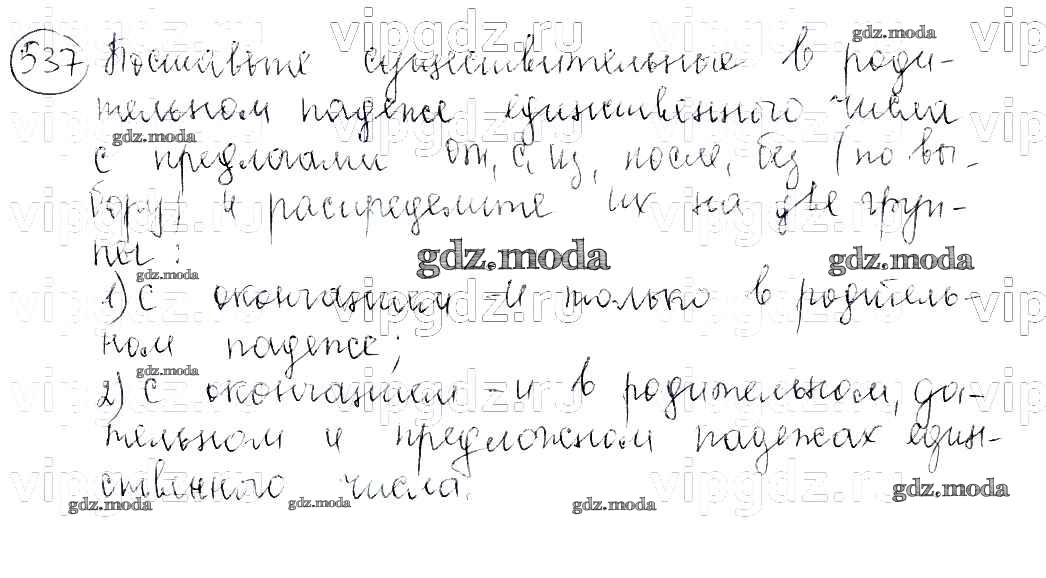 537 Поставьте существительные в роди-
тельном падеже единственного числа
с предлогами от, с, из, после, без (по вы-
бору) и распределите их на две груп-
пы:
1) с окончанием -и только в родитель-
ном падеже;
2) с окончанием -и в родительном, да-
тельном и предложном падежах един-
ственного числа.
gdz.moda
vipgdz.ru